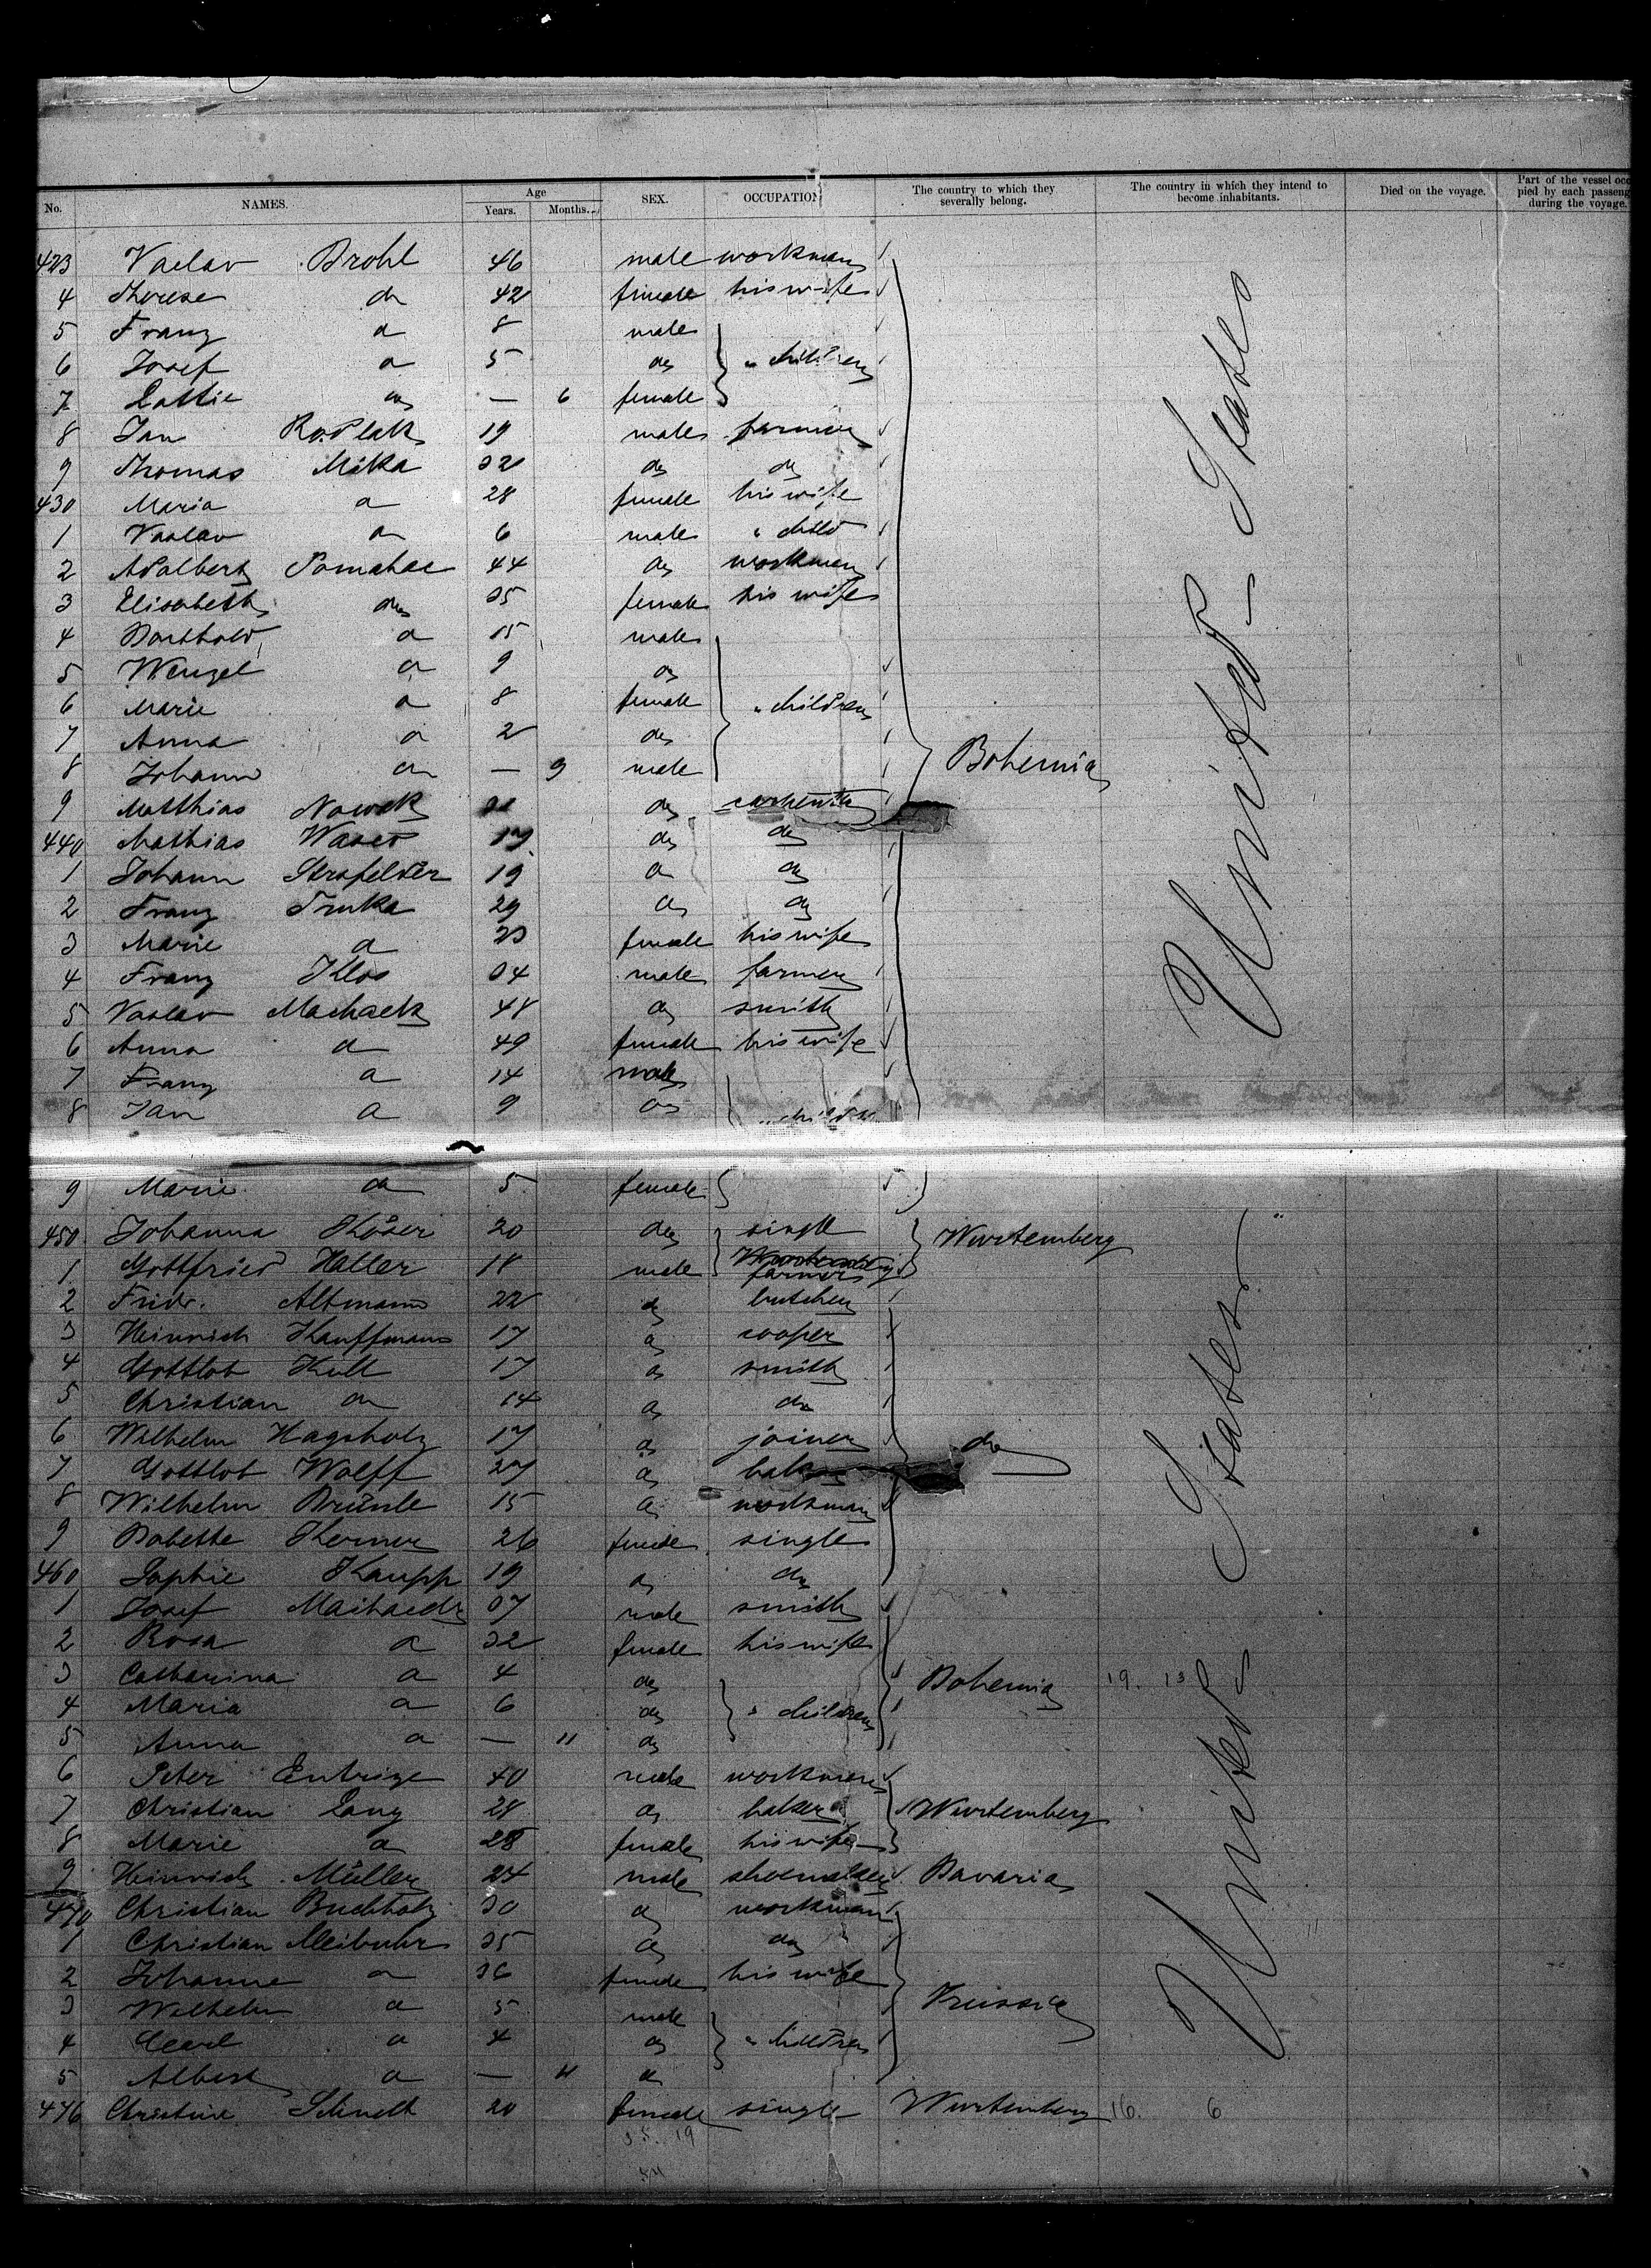 No. NAMES. Age Years. Months. SEX. OCCUPATION The country to which they severally belong. The country in which they intend to become inhabitants. Died on the voyage. Part of the vessel occ pied by each passeng during the voyage.
423 Vaclav Brohl 46 male workman
4 Therese do 42 female his wife
5 Franz do 8 male
6 Josef do 5 do " children
7 Lottie do — 6 female
8 Jan 19 male farmer
9 Thomas Mika 32 do do
430 Maria do 28 female his wife
1 Vaslav do 6 male " child
2 Adalbert Pomahac 44 do workman
3 Elisabeth do 35 female his wife
4 Barthold do 15 male
5 Wenzel do 9 do
6 Marie do 8 female " children
7 Anna do 2 do
8 Johann do — 9 male Bohemia
9 Matthias Nowak do
440 Mathias 17 do do
1 Johann 19 do do
2 Franz Truka 29 do do
3 Marie do 23 female his wife
4 Franz Klos 34 male farmer
5 Vaslav Machack 48 do smith
6 Anna do 49 female his wife
7 Franz do 14 male
8 Jan do 9 do " children
United States
9 Marie do 5 female
450 Johanna 20 do single Wurtemberg
1 Gottfried Haller 18 male farmer
2 Fridr. Altmann 22 do butcher
3 Heinrich Kauffmann 17 do cooper
4 Gottlob Kull 17 do smith
5 Christian do 14 do do
6 Wilhelm Hagsholz 17 do joiner do
7 Gottlob Wolff 27 do baker
8 Wilhelm Bräunle 15 do workman
9 Babette Kerner 26 female single
460 Sophie Kaupp 19 do do
1 Josef 37 male smith
2 Rosa do 32 female his wife
3 Catharina do 4 do Bohemia 19. 13
4 Maria do 6 do " children
5 Anna do — 11 do
6 Peter 40 male workman
7 Christian Lang 28 do baker Wurtemberg
8 Marie do 28 female his wife
9 Heinrich Müller 24 male shoemaker Bavaria
470 Christian Buchholz 30 do workman
1 Christian Meibuhr 35 do do
2 Johanne do 36 female his wife
3 Wilhelm do 5 male Prussia
4 Carl do 4 do " children
5 Albert do — 11 do
476 Christine 20 female single Wurtemberg 16. 6
United States
35. 19
54